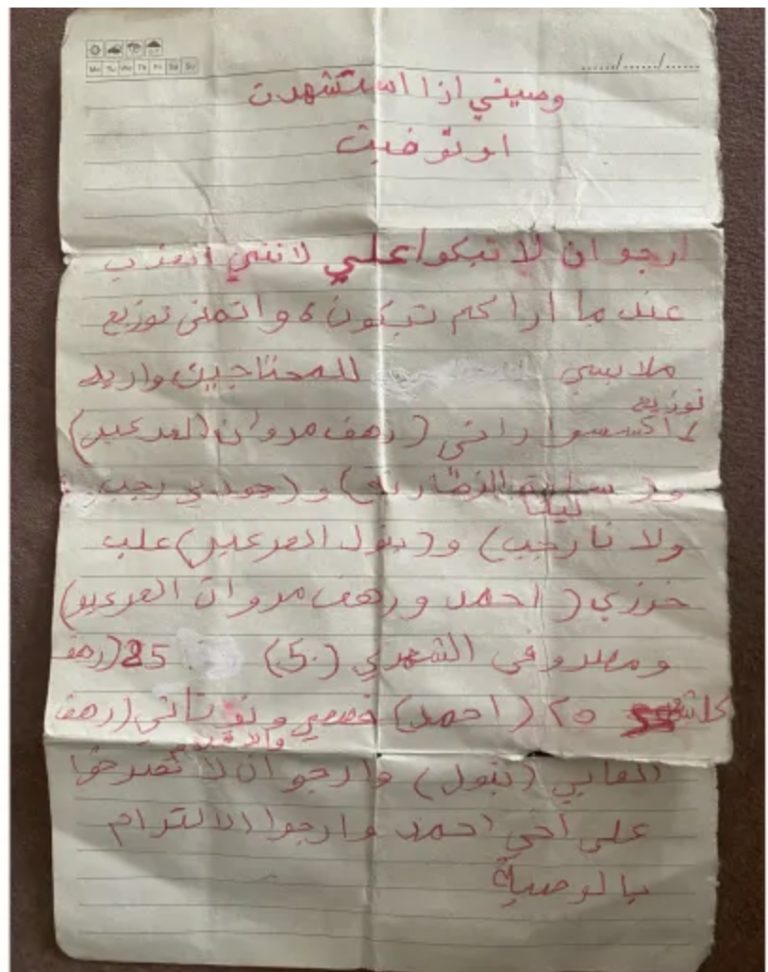 Mo Tu We Th Fr Sa Su
....../....../......
وصيتي اذا استشهدت
او توفيت
ارجو ان لا تبكوا علي لانني اتعذب
عند ما اراكم تبكون، واتمنى توزيع
ملابسي للمحتاجين واريد
توزيع
اكسسواراتي (رهف مروان العرعير)
و( و(جودي رجب
لينا
ولانا رجب) و(بتول العرعير) علب
خرزي (احمد ورهف مروان العرعير)
ومصروفي الشهري (50) 25 (رهف
كل شهر 25 (احمد) قصصي ودفاتري (رهف
العابي (بتول) وارجو ان لا تصرخوا
على اخي احمد وارجوا الالتزام
بالوصية